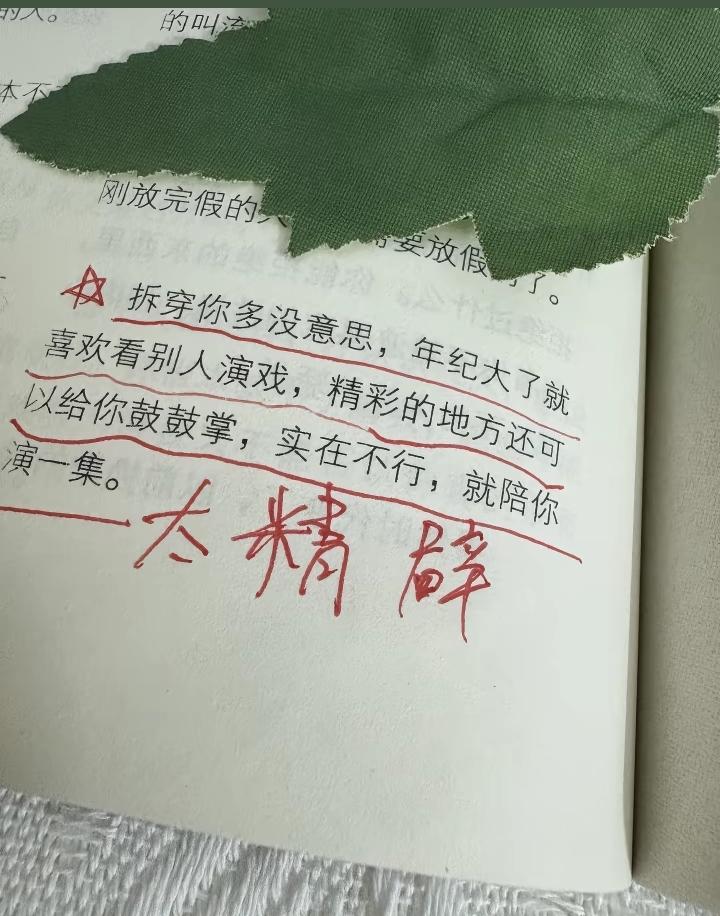 的人。
的叫
本不
刚放完假的 需要放假 了。
拆穿你多没意思，年纪大了就
喜欢看别人演戏，精彩的地方还可
以给你鼓鼓掌，实在不行，就陪你
演一集。
太精辟